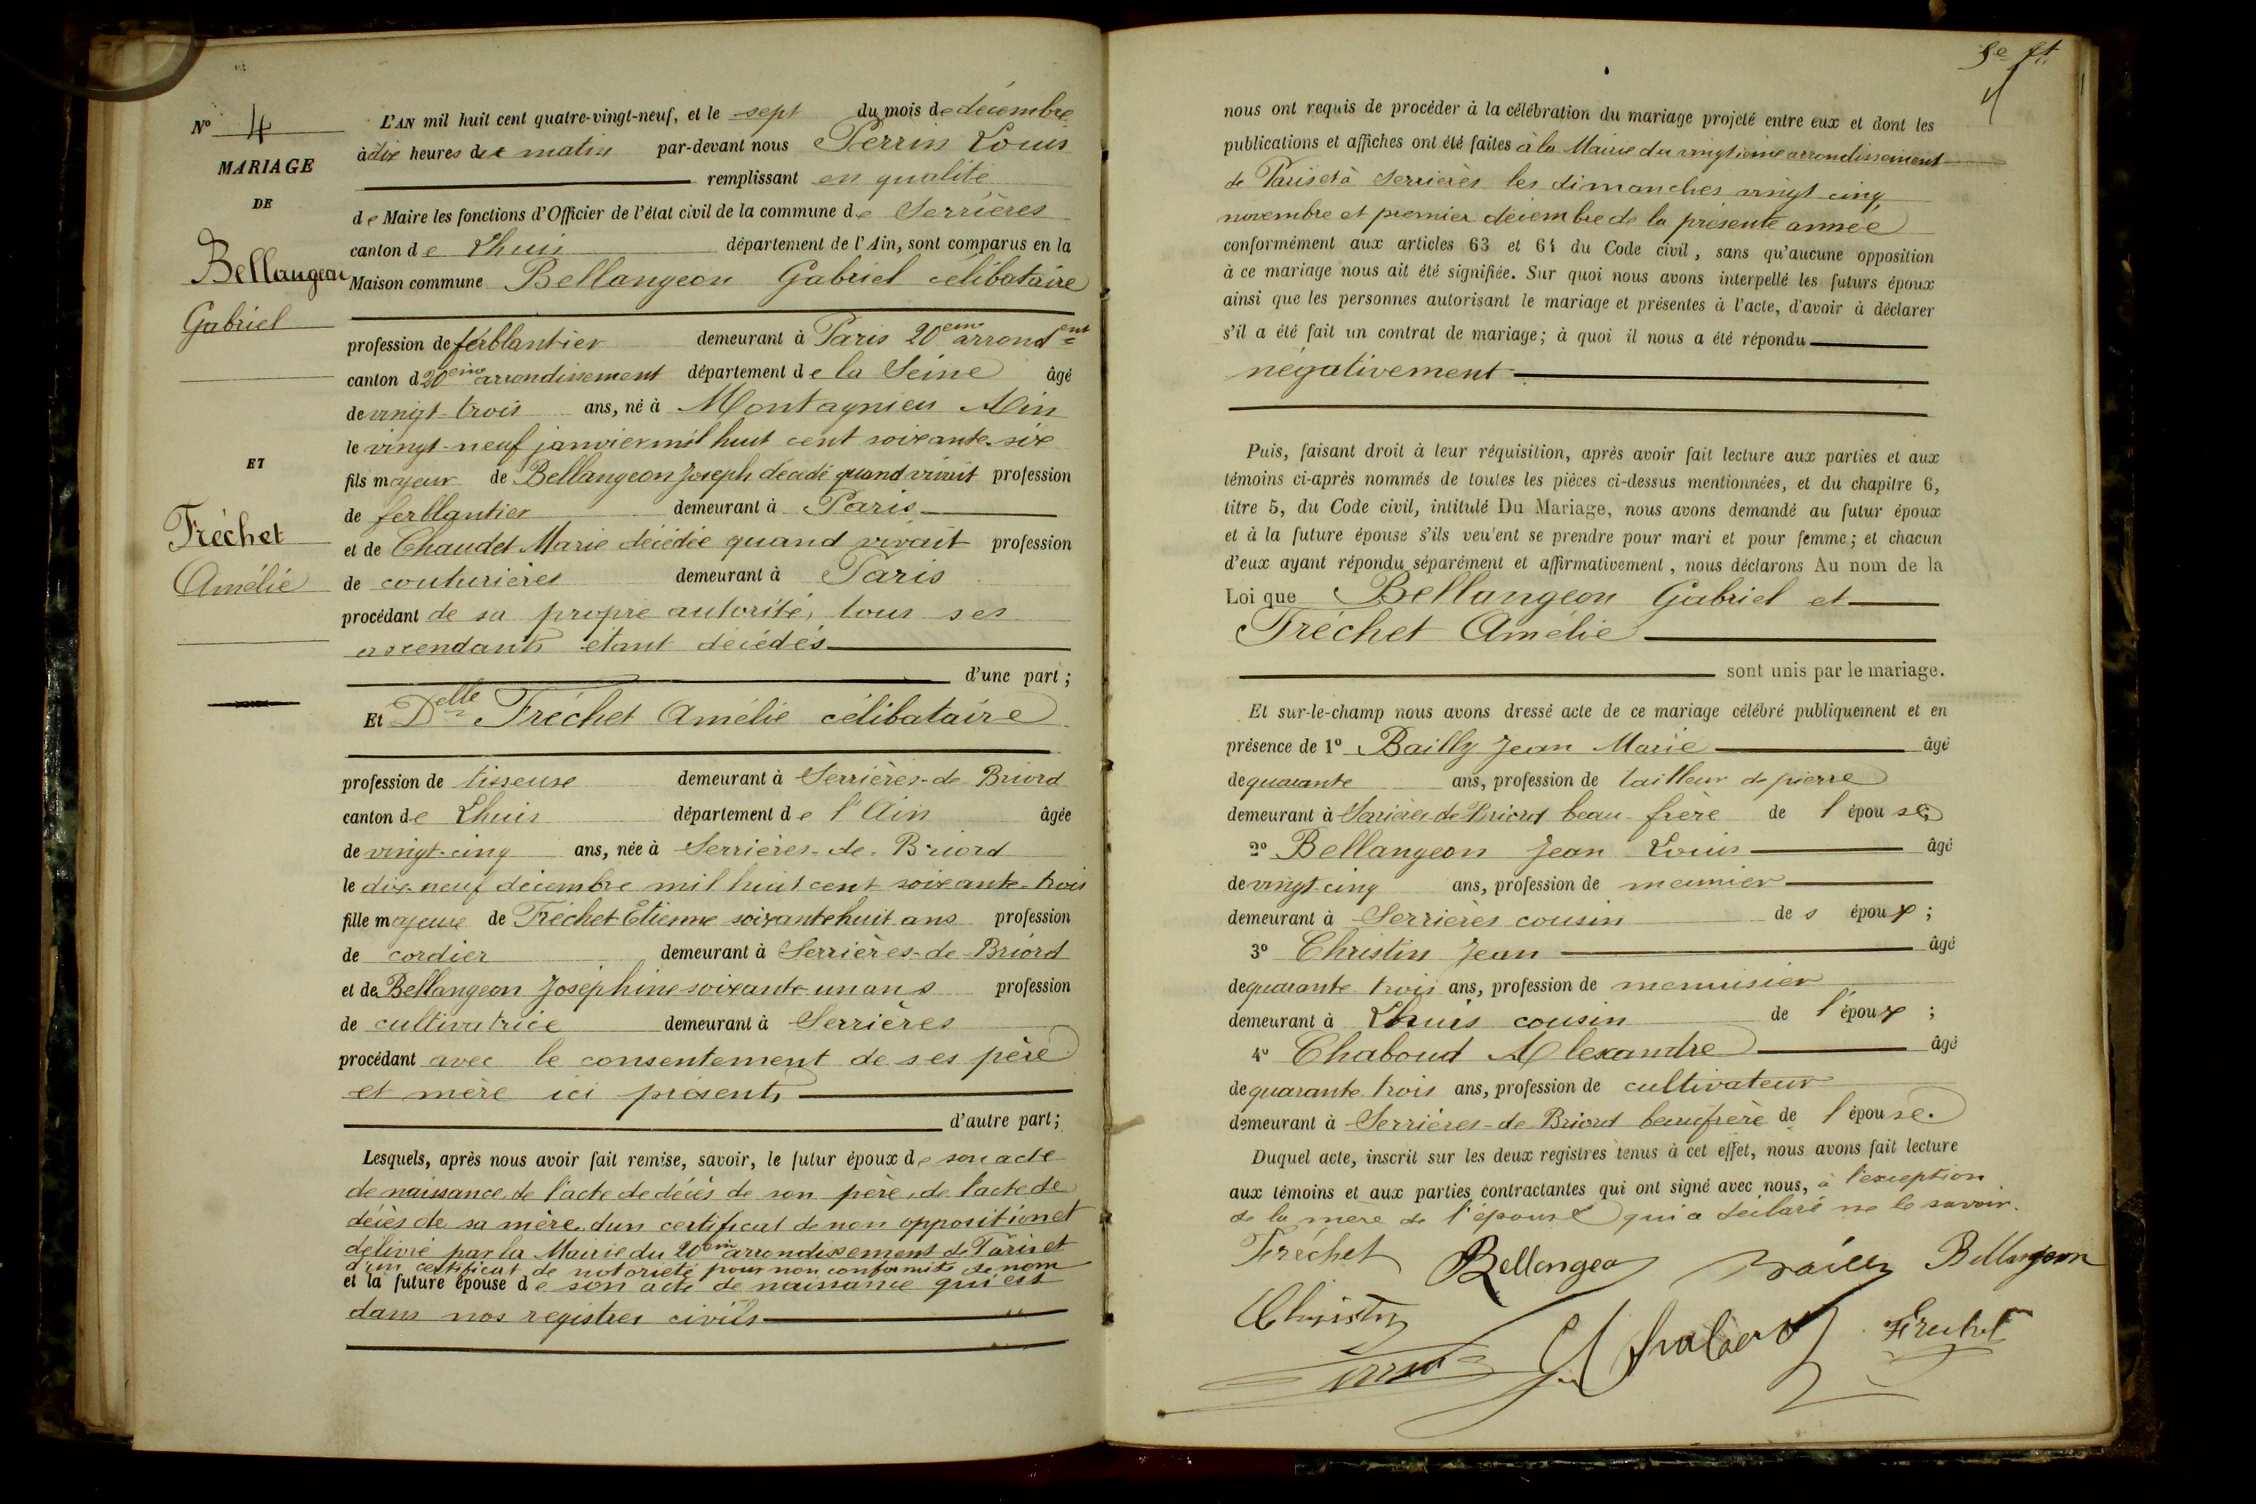 No 4
MARIAGE
DE
Bellangeon
Gabriel
ET
Fréchet
Amélie
L'AN mil huit cent quatre-vingt-neuf, et le sept du mois de décembre
à dix heures du matin par-devant nous Perrin Louis
remplissant en qualité
de Maire les fonctions d'Officier de l'état civil de la commune de Serrières
canton de Lhuis département de l'Ain, sont comparus en la
Maison commune Bellangeon Gabriel célibataire
profession de ferblantier demeurant à Paris 20eme arrondent
canton d 20eme arrondissement département de la Seine âgé
de vingt-trois ans, né à Montagnieu Ain
le vingt-neuf janvier mil huit cent soixante-six
fils majeur de Bellangeon Joseph décédé quand vivait profession
de ferblantier demeurant à Paris
et de Chaudet Marie décédée quand vivait profession
de couturières demeurant à Paris
procédant de sa propre autorité, tous ses
ascendants étant décédés
d'une part ;
Et Delle Fréchet Amélie célibataire
profession de tisseuse demeurant à Serrières-de Briord
canton de Lhuis département de l'Ain âgée
de vingt-cinq ans, née à Serrières-de-Briord
le dix-neuf décembre mil huit cent soixante-trois
fille majeure de Fréchet Etienne soixante huit ans profession
de cordier demeurant à Serrières-de-Briord
et de Bellangeon Joséphine soixante-un ans profession
de cultivatrice demeurant à Serrières
procédant avec le consentement de ses père
et mère ici présents
d'autre part ;
Lesquels, après nous avoir fait remise, savoir, le futur époux de son acte
de naissance, de l'acte de décès de son père, de l'acte de
décès de sa mère, d'un certificat de non opposition et
délivré par la Mairie du 20eme arrondissement de Paris et
d'un certificat de notoriété pour non conformité de nom
et la future épouse de son acte de naissance qui est
dans nos registres civils
nous ont requis de procéder à la célébration du mariage projeté entre eux et dont les
publications et affiches ont été faites à la Mairie du vingtième arrondissement
de Paris et à Serrières les dimanches vingt cinq
novembre et premier décembre de la présente année
conformément aux articles 63 et 64 du Code civil, sans qu'aucune opposition
à ce mariage nous ait été signifiée. Sur quoi nous avons interpellé les futurs époux
ainsi que les personnes autorisant le mariage et présentes à l'acte, d'avoir à déclarer
s'il a été fait un contrat de mariage ; à quoi il nous a été répondu
négativement
Puis, faisant droit à leur réquisition, après avoir fait lecture aux parties et aux
témoins ci-après nommés de toutes les pièces ci-dessus mentionnées, et du chapitre 6,
titre 5, du Code civil, intitulé Du Mariage, nous avons demandé au futur époux
et à la future épouse s'ils veulent se prendre pour mari et pour femme ; et chacun
d'eux ayant répondu séparément et affirmativement, nous déclarons Au nom de la
Loi que Bellangeon Gabriel et
Fréchet Amélie
sont unis par le mariage.
Et sur-le-champ nous avons dressé acte de ce mariage célébré publiquement et en
présence de 1o Bailly Jean Marie âgé
de quarante ans, profession de tailleur de pierre
demeurant à Serrières de Briord beau-frère de l'épouse ;
2o Bellangeon Jean Louis âgé
de vingt-cinq ans, profession de meunier
demeurant à Serrières cousin de s époux ;
3o Christin Jean âgé
de quarante trois ans, profession de menuisier
demeurant à Lhuis cousin de l'époux ;
4o Chaboud Alexandre âgé
de quarante trois ans, profession de cultivateur
demeurant à Serrières-de Briord beau frère de l'épouse.
Duquel acte, inscrit sur les deux registres tenus à cet effet, nous avons fait lecture
aux témoins et aux parties contractantes qui ont signé avec nous, à l'exception
de la mère de l'épouse qui a déclaré ne le savoir.
Fréchet Bellangeo Bailly Bellangeon
Christin
Perrin Chaboud Fréchet